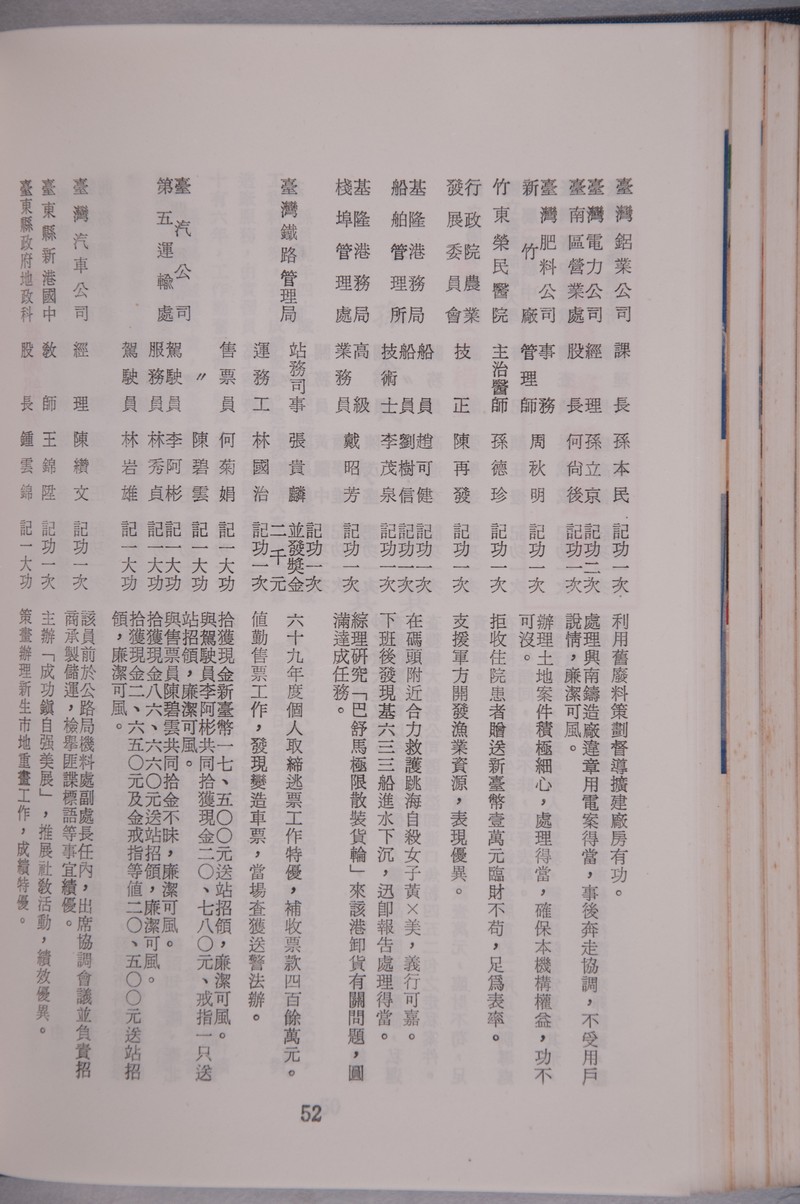 臺灣鋁業公司　課長　孫本民　記功一次　利用舊廢料策劃督導擴建廠房有功。
臺灣電力公司　經理　孫立京　記功二次　處理興南鑄造廠違章用電案得當，事後奔走協調，不受用戶
臺南區營業處　股長　何尙後　記功一次　說情，廉潔可風。
臺灣肥料公司　事務　辦理土地案件積極細心，處理得當，確保本機構權益，功不
新竹廠　管理師　周秋明　記功一次　可沒。
竹東榮民醫院　主治醫師　孫德珍　記功一次　拒收住院患者贈送新臺幣壹萬元臨財不苟，足爲表率。
行政院農業
發展委員會　技正　陳再發　記功一次　支援軍方開發漁業資源，表現優異。
基隆港務局　船員　趙可健　記功一次　在碼頭附近合力救護跳海自殺女子黃×美，義行可嘉。
船舶管理所　船員　劉樹信　記功一次
技術士　李茂泉　記功一次　下班後發現基六三三船進水下沉，迅卽報告處理得當。
基隆港務局　高級　綜理研究「巴舒馬極限散裝貨輪」來該港卸貨有關問題，圓
棧埠管理處　業務員　戴昭芳　記功一次　滿達成任務。
臺灣鐵路管理局　站務司事　張貴麟　記功一次
並發獎金
二千元　六十九年度個人取締逃票工作特優，補收票款四百餘萬元。
運務工　林國治　記功一次　値勤售票工作，發現變造車票，當場查獲送警法辦。
臺汽公司
第五運輸處　售票員　何菊娟　記一大功　拾獲現金新臺幣一七、五〇〇元送站招領，廉潔可風。
〃　陳碧雲　記一大功　與駕駛員李阿彬共同拾獲現金二〇、七八〇元、戒指一只送
站招領，廉潔可風。
駕駛員　李阿彬　記一大功　與售票員陳碧雲共同拾金不昧，廉潔可風。
服務員　林秀貞　記一大功　拾獲現金八六、六六〇元送站招領，廉潔可風。
駕駛員　林岩雄　記一大功　拾獲現金二、六五〇元及金戒指等値二〇、五〇〇元送站招
領，廉潔可風。
臺灣汽車公司　經理　陳纘文　記功一次　該員前於公路局機料處副處長任內，出席協調會議並負責招
商承製儲運，檢舉匪諜標語等事宜績優。
臺東縣新港國中　敎師　王錦陞　記功一次　主辦「成功鎭自强美展」，推展社敎活動，績效優異。
臺東縣政府地政科　股長　鍾雲錦　記一大功　策畫辦理新生市地重畫工作，成績特優。
52